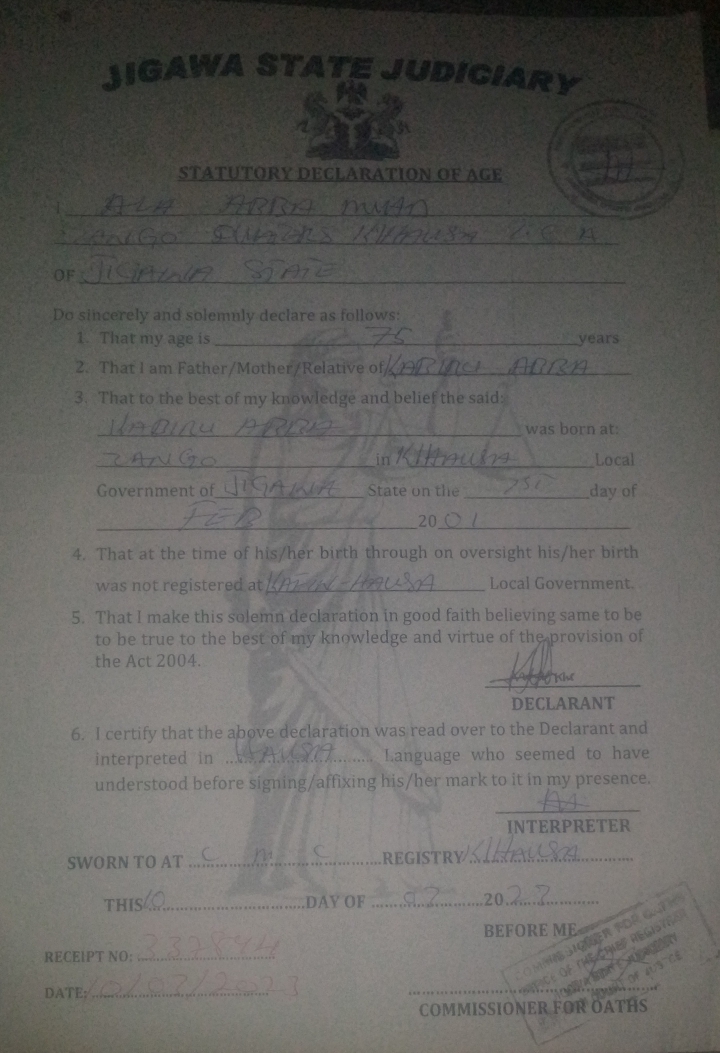 JIGAWA STATE JUDICIARY
STATUTORY DECLARATION OF AGE
I ALA ARBA
ZANGO K/HAUSA L.G.A
OF JIGAWA STATE
Do sincerely and solemnly declare as follows:
1. That my age is 75 years
2. That I am Father/Mother/Relative of KABIRU ARBA
3. That to the best of my knowledge and belief the said:
KABIRU ARBA was born at:
ZANGO in K/Hausa Local
Government of JIGAWA State on the day of
FEB 2001
4. That at the time of his/her birth through on oversight his/her birth
was not registered at KAFIN-HAUSA Local Government.
5. That I make this solemn declaration in good faith believing same to be
to be true to the best of my knowledge and virtue of the provision of
the Act 2004.
DECLARANT
6. I certify that the above declaration was read over to the Declarant and
interpreted in HAUSA Language who seemed to have
understood before signing/affixing his/her mark to it in my presence.
INTERPRETER
SWORN TO AT C M C REGISTRY K/HAUSA
THIS 10 DAY OF 2023
BEFORE ME
RECEIPT NO: 337844
DATE: 10/03/2023
COMMISSIONER FOR OATHS